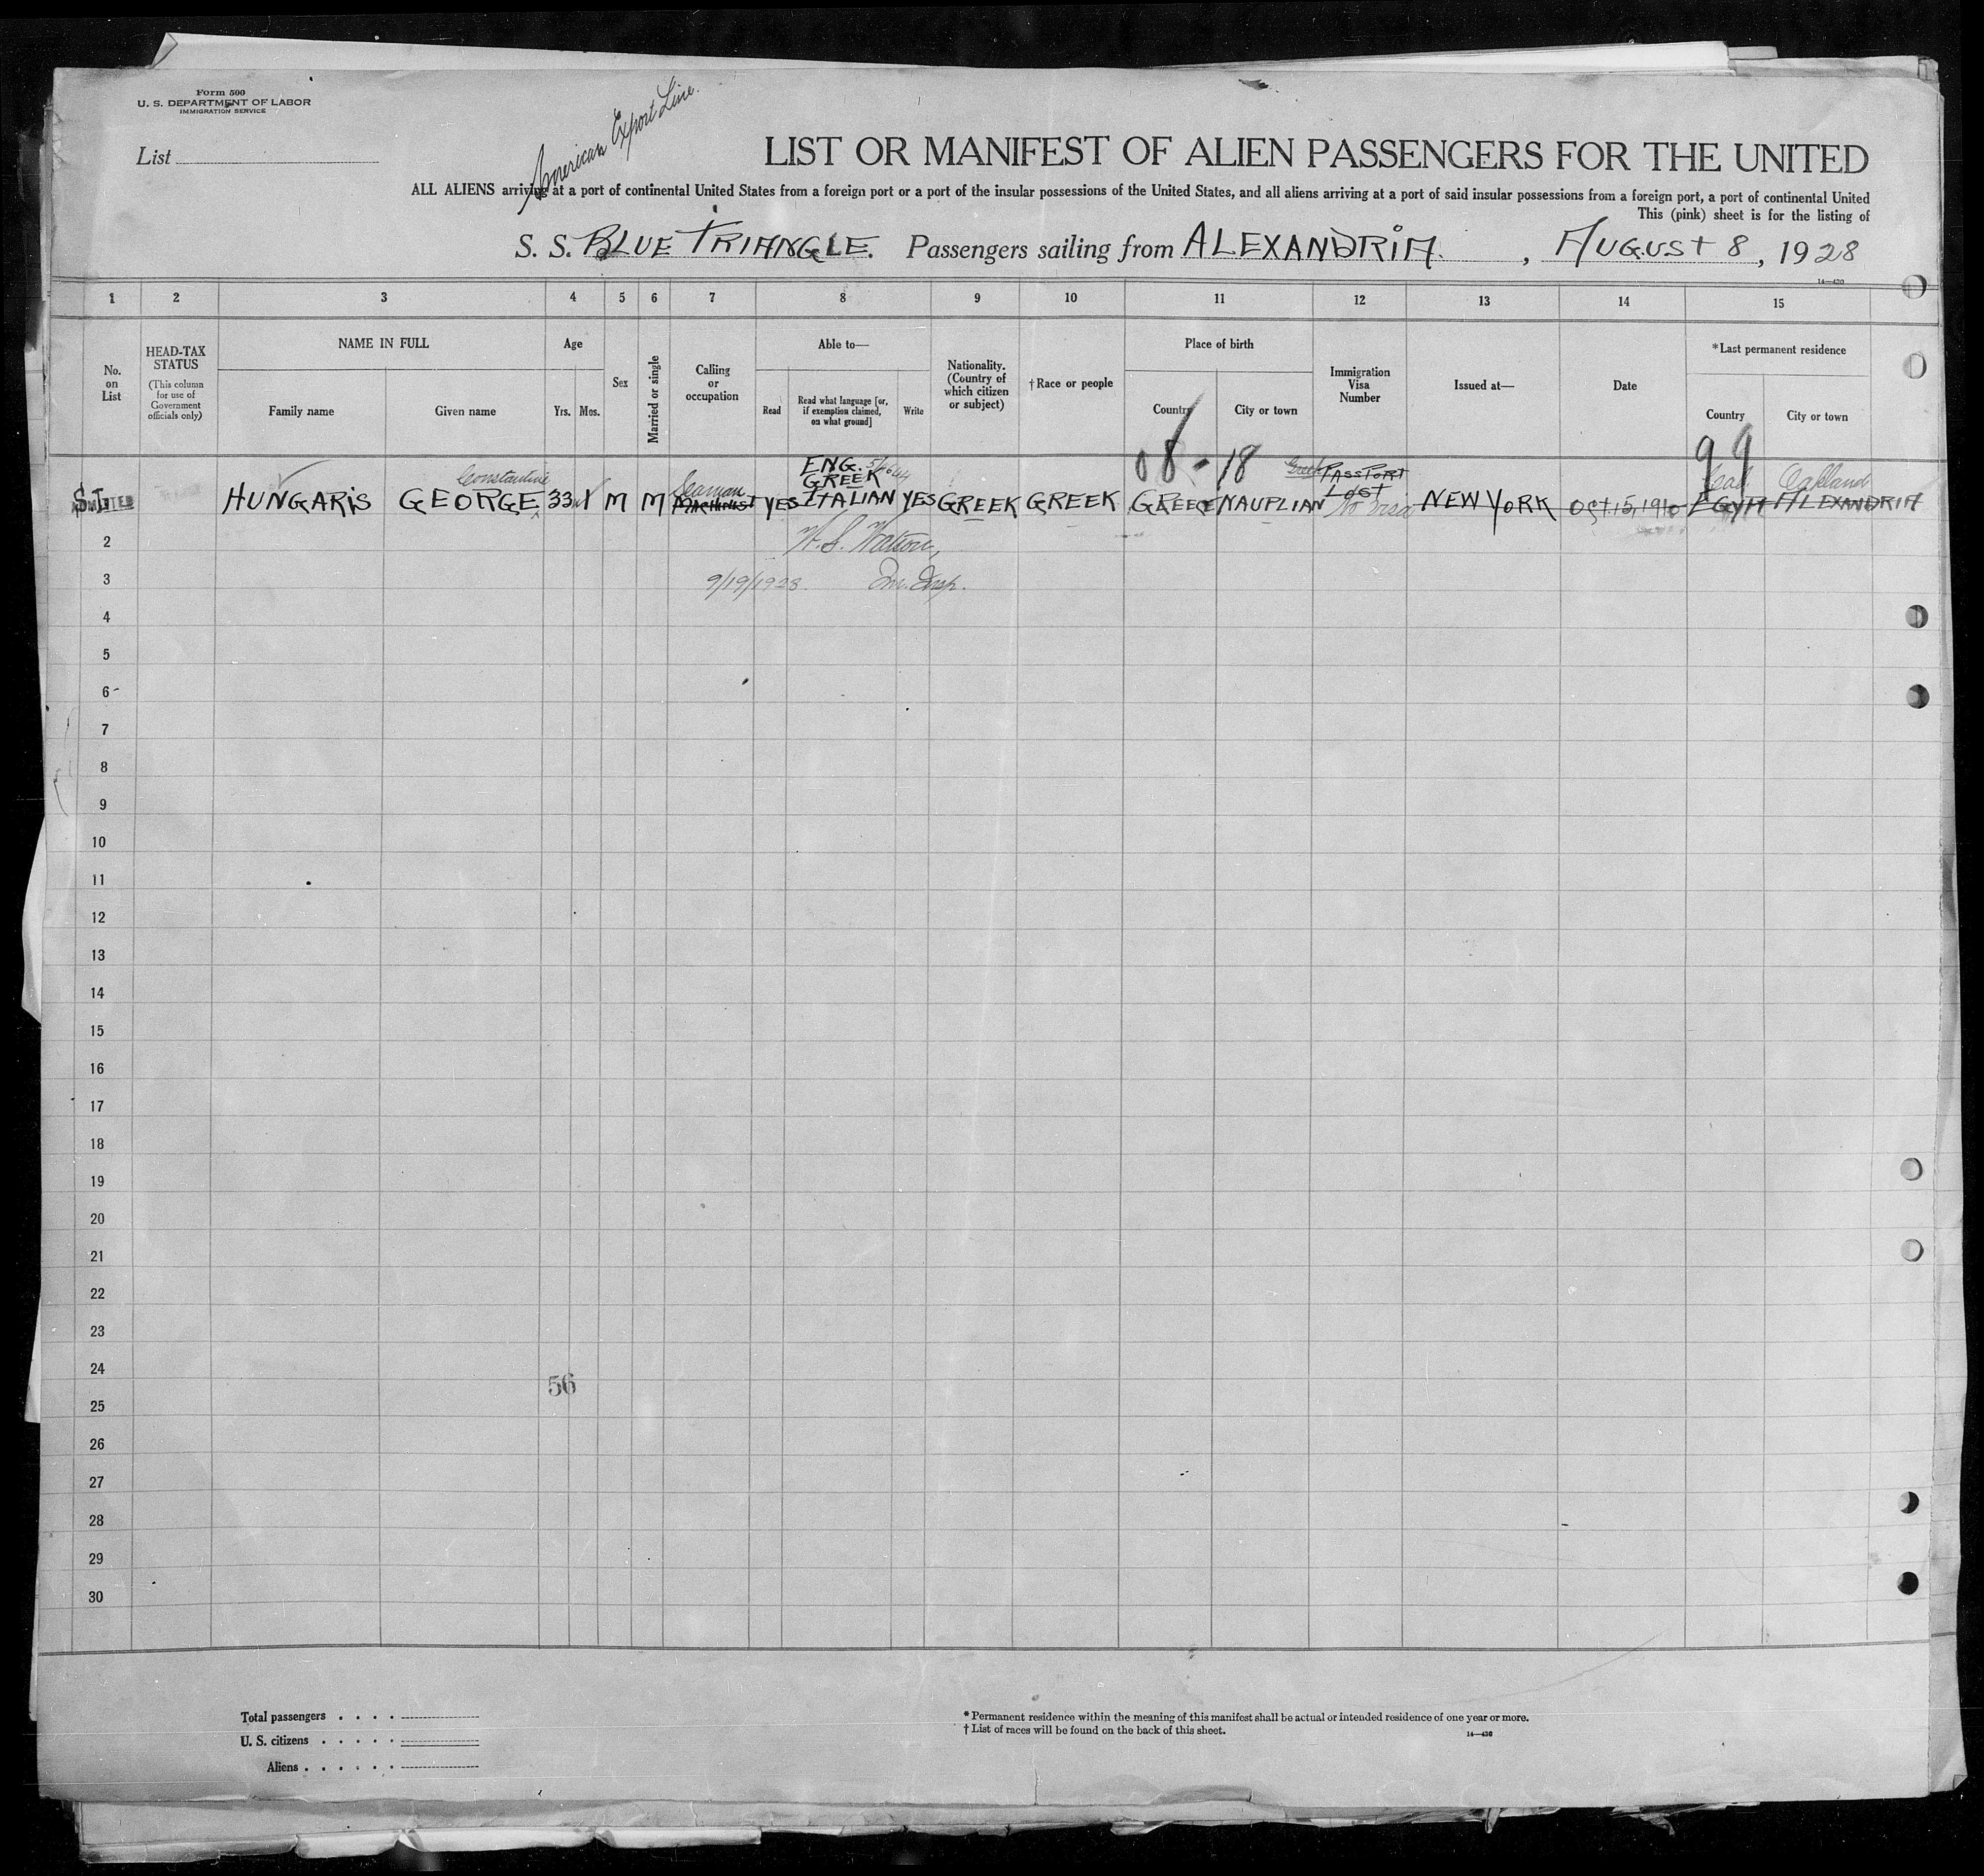 Form 500
U. S. DEPARTMENT OF LABOR
IMMIGRATION SERVICE
American Export Line.
List
LIST OR MANIFEST OF ALIEN PASSENGERS FOR THE UNITED
ALL ALIENS arriving at a port of continental United States from a foreign port or a port of the insular possessions of the United States, and all aliens arriving at a port of said insular possessions from a foreign port, a port of continental United
This (pink) sheet is for the listing of
S. S. BLUE TRIANGLE. Passengers sailing from ALEXANDRIA. , AUGUST 8, 1928
14—430
1 2 3 4 5 6 7 8 9 10 11 12 13 14 15
No. on List
HEAD-TAX STATUS (This column for use of Government officials only)
NAME IN FULL
Family name Given name
Age
Yrs. Mos.
Sex
Married or single
Calling or occupation
Able to—
Read Read what language [or, if exemption claimed, on what ground] Write
Nationality. (Country of which citizen or subject)
† Race or people
Place of birth
Country City or town
Immigration Visa Number
Issued at—
Date
*Last permanent residence
Country City or town
08-18 99
Constantine Seaman ENG. GREEK Greek PASSPORT LOST Cal. Oakland
ADMITTED HUNGARIS GEORGE 33 M M MACHINIST YES ITALIAN YES GREEK GREEK GREECE NAUPLIAN No visa NEW YORK OCT. 15, 1910 EGYPT ALEXANDRIA
2 W. S. Watson,
3 9/19/1928. Im. Insp.
4
5
6
7
8
9
10
11
12
13
14
15
16
17
18
19
20
21
22
23
24
56
25
26
27
28
29
30
Total passengers . . . .
U. S. citizens . . . . .
Aliens . . . . . .
* Permanent residence within the meaning of this manifest shall be actual or intended residence of one year or more.
† List of races will be found on the back of this sheet.
14—430